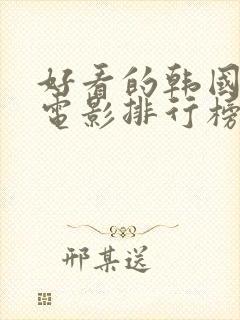 好看的韩国
电影排行榜
邢某送